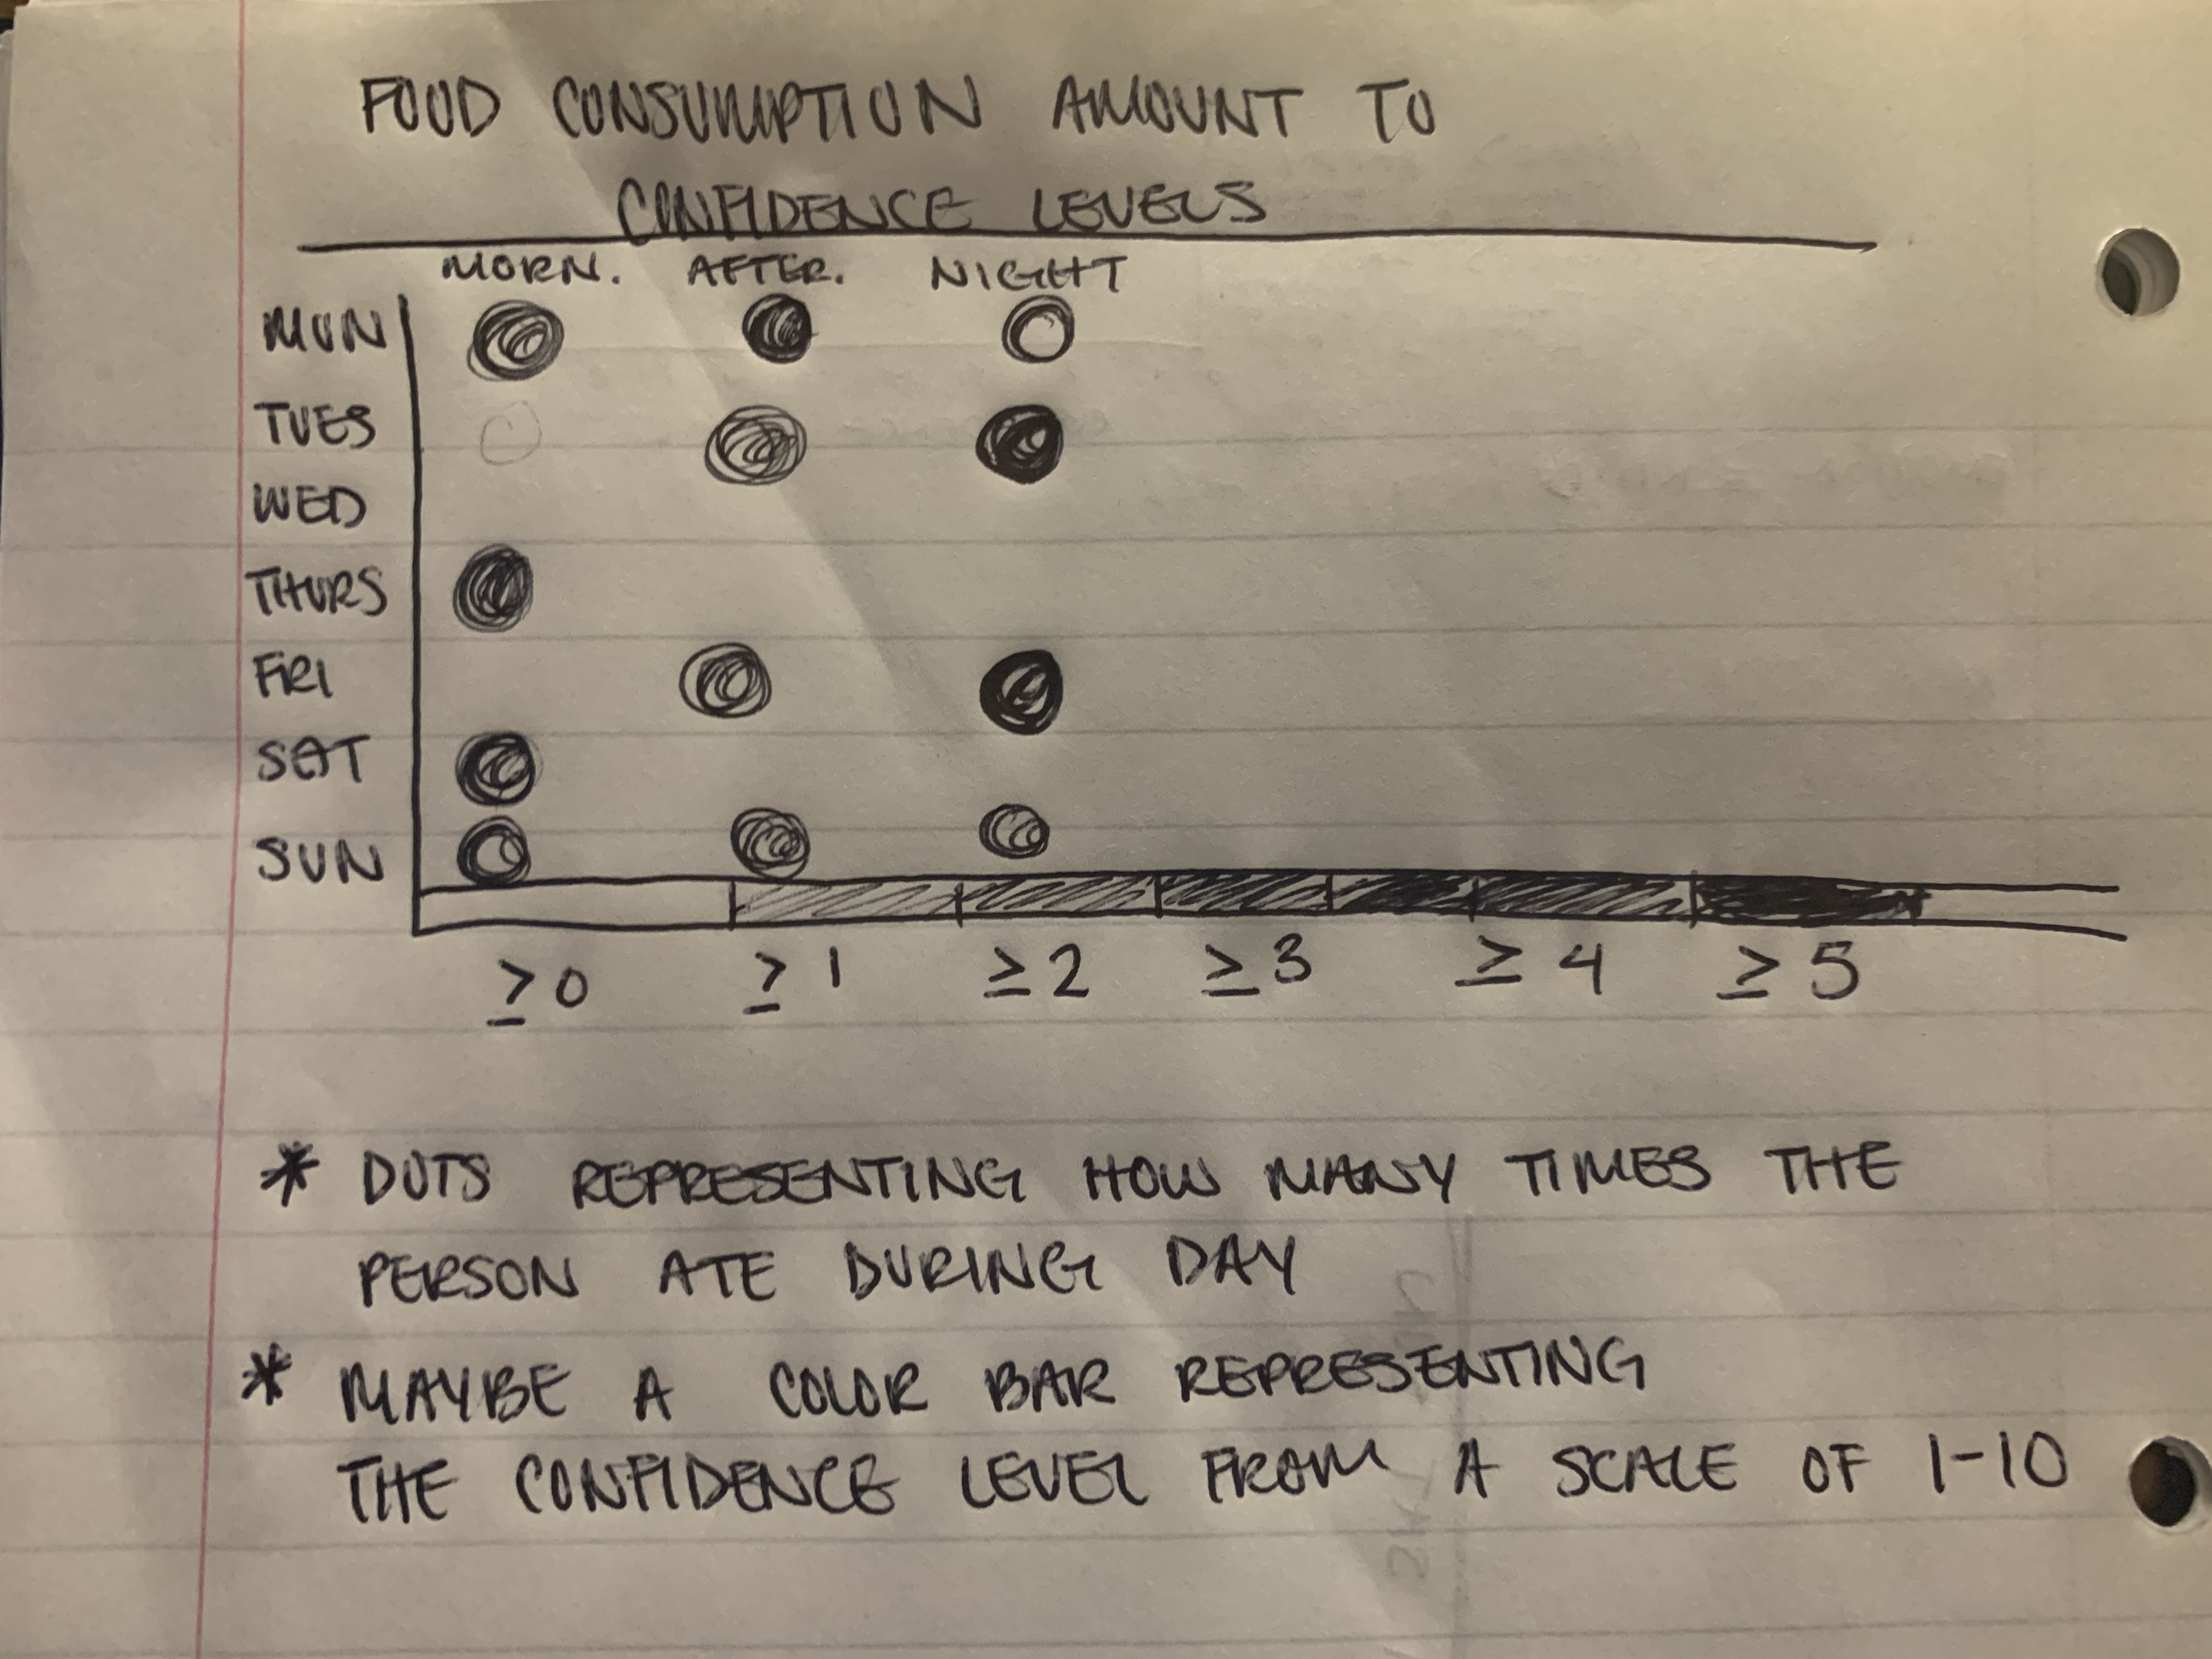 FOOD CONSUMPTION AMOUNT TO
CONFIDENCE LEVELS
MORN. AFTER. NIGHT
MON
TUES
WED
THURS
FRI
SAT
SUN
≥0 ≥1 ≥2 ≥3 ≥4 ≥5
* DOTS REPRESENTING HOW MANY TIMES THE
PERSON ATE DURING DAY
* MAYBE A COLOR BAR REPRESENTING
THE CONFIDENCE LEVEL FROM A SCALE OF 1-10